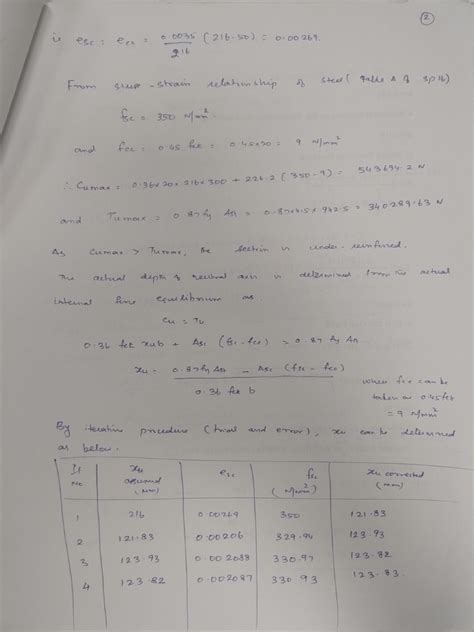 2
ie esc = ecs = 0.0035/216 (216-50) = 0.00269.
From stress-strain relationship of steel (Table A of SP16)
fsc = 350 N/mm²
and fcc = 0.45 fck = 0.45x20 = 9 N/mm²
∴ Cumax = 0.36x20x216x300 + 226.2 (350-9) = 543694.2 N
and Tumax = 0.87 fy Ast = 0.87x415x942.5 = 340289.63 N
As Cumax > Tumax, the section is under-reinforced.
The actual depth of neutral axis is determined from the actual
internal force equilibrium as
Cu = Tu
0.36 fck xu b + Asc (fsc - fcc) = 0.87 fy Ast
xu = 0.87 fy Ast - Asc (fsc - fcc)
0.36 fck b
where fcc can be
taken as 0.45 fck
= 9 N/mm²
By iterative procedure (trial and error), xu can be determined
as below.
No xu assumed (mm) esc fsc (N/mm²) xu corrected (mm)
1 216 0.00269 350 121.83
2 121.83 0.00206 329.94 123.93
3 123.93 0.002088 330.97 123.82
4 123.82 0.002087 330.93 123.83